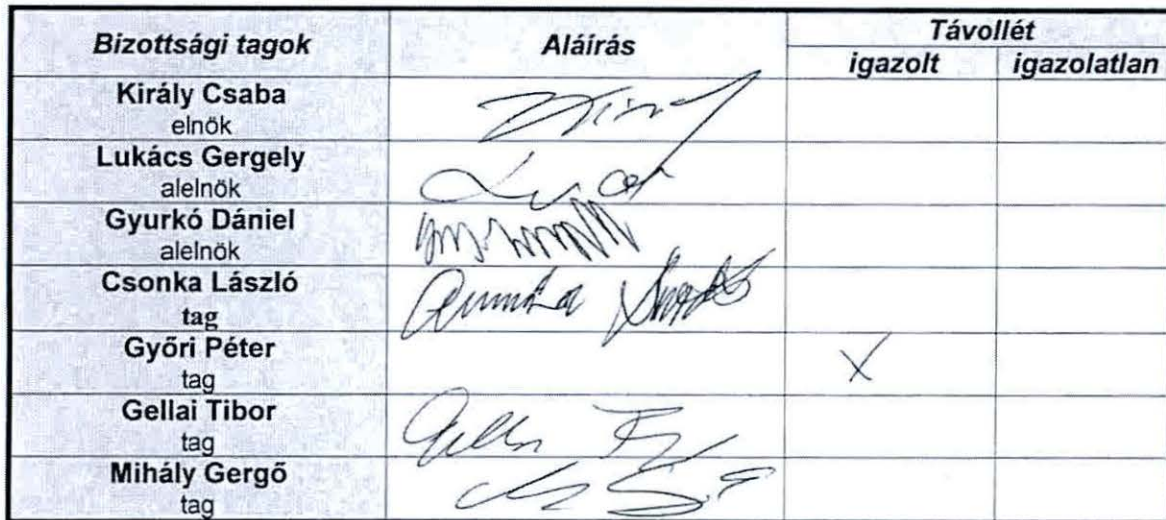 Bizottsági tagok Aláírás Távollét
igazolt igazolatlan
Király Csaba
elnök
Lukács Gergely
alelnök
Gyurkó Dániel
alelnök
Csonka László
tag
Győri Péter X
tag
Gellai Tibor
tag
Mihály Gergő
tag